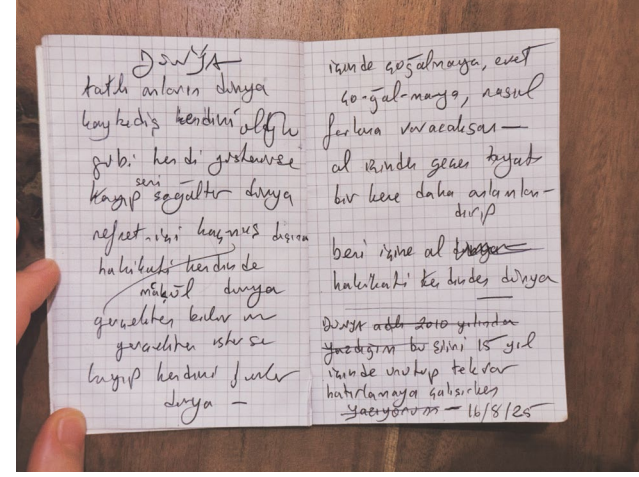 DÜNYA
tatlı anların dünya
kaybediş kendini olduğu
gibi kendi gösterirse
seni
kayıp sağaltır dünya
nefret içi kaçmış dışına
hakikati kendinde
makûl dünya
gerçekten bilir
gerçekten isterse
kayıp kendini
dünya —
içinde çoğalmaya, evet
ço-ğal-maya, nasıl
farkına varacaksan —
al içinden geçen hayatı
bir kere daha anlamlan-
dırıp
beni içine al
hakikati kendinden dünya
DÜNYA adlı 2010 yılında
yazdığım bu şiiri 15 yıl
içinde unutup tekrar
hatırlamaya çalışırken
yazıyorum — 16/8/25